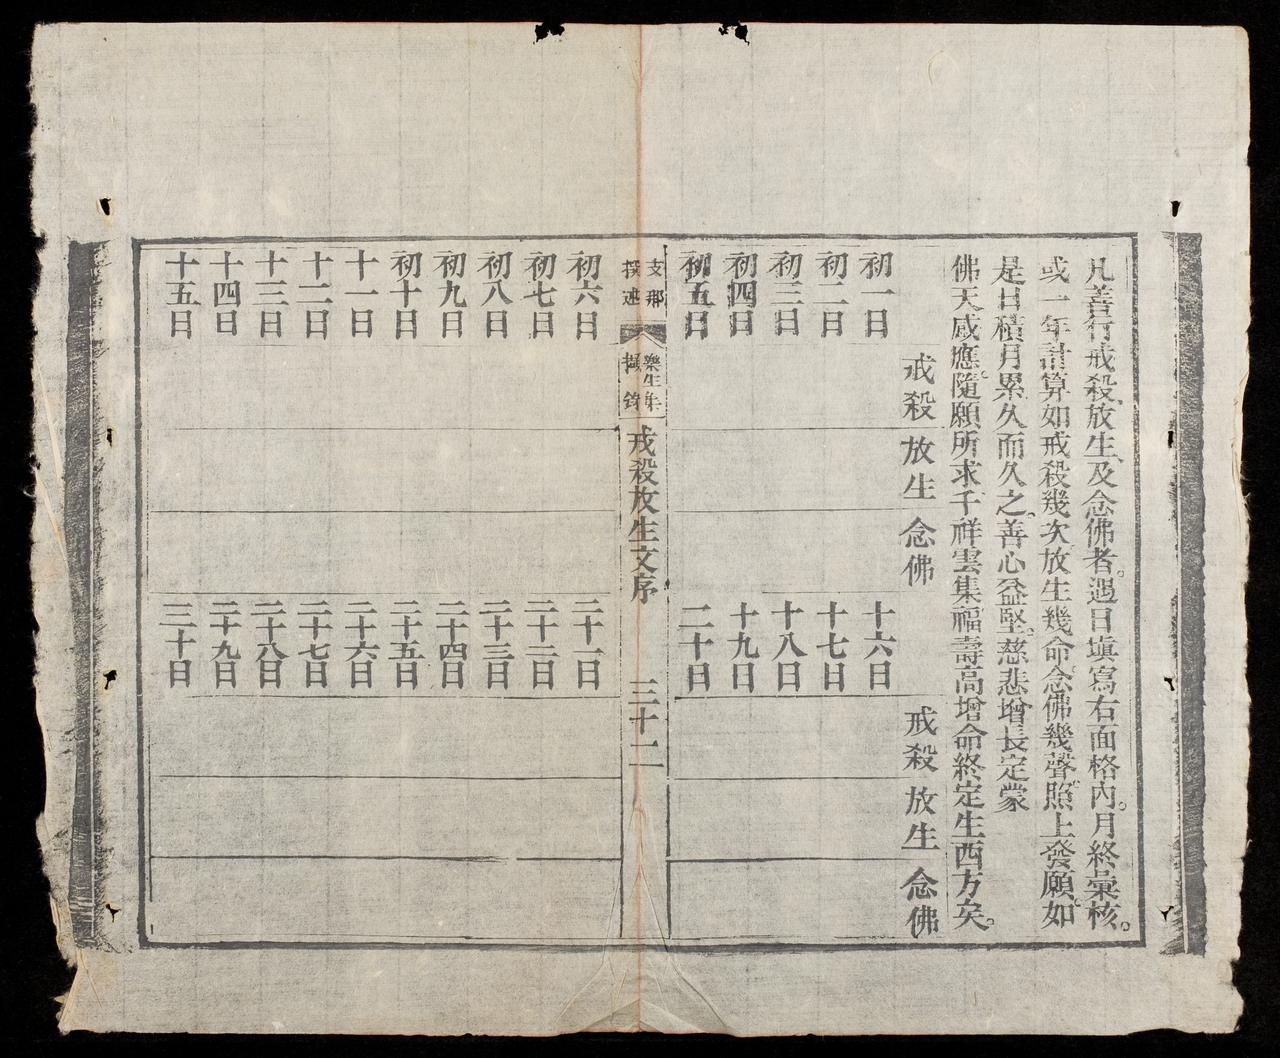 凡善行戒殺、放生、及念佛者。遇日塡寫右面格內。月終彙核。
或一年計算如戒殺幾次放生幾命。念佛幾聲。照上發願。如
是日積月累久而久之。善心益堅。慈悲增長定蒙
佛天感應。隨願所求千祥雲集福壽高增命終定生西方矣。
戒殺 放生 念佛 戒殺 放生 念佛
初一日 十六日
初二日 十七日
初三日 十八日
初四日 十九日
初五日 二十日
支那撰述 樂生集 撮錄 戒殺放生文序 三十二
初六日 二十一日
初七日 二十二日
初八日 二十三日
初九日 二十四日
初十日 二十五日
十一日 二十六日
十二日 二十七日
十三日 二十八日
十四日 二十九日
十五日 三十日